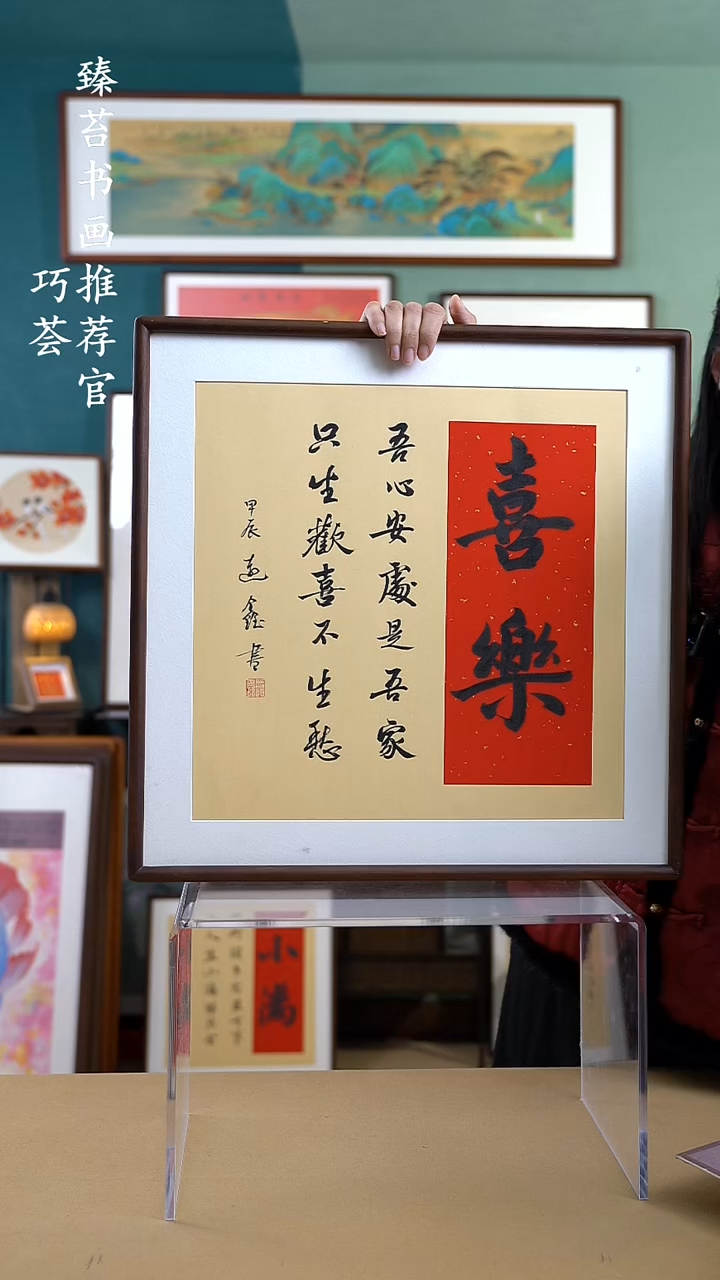 臻苔书画推荐官
巧荟
喜樂
吾心安處是吾家
只生歡喜不生愁
甲辰 鑫書
小满